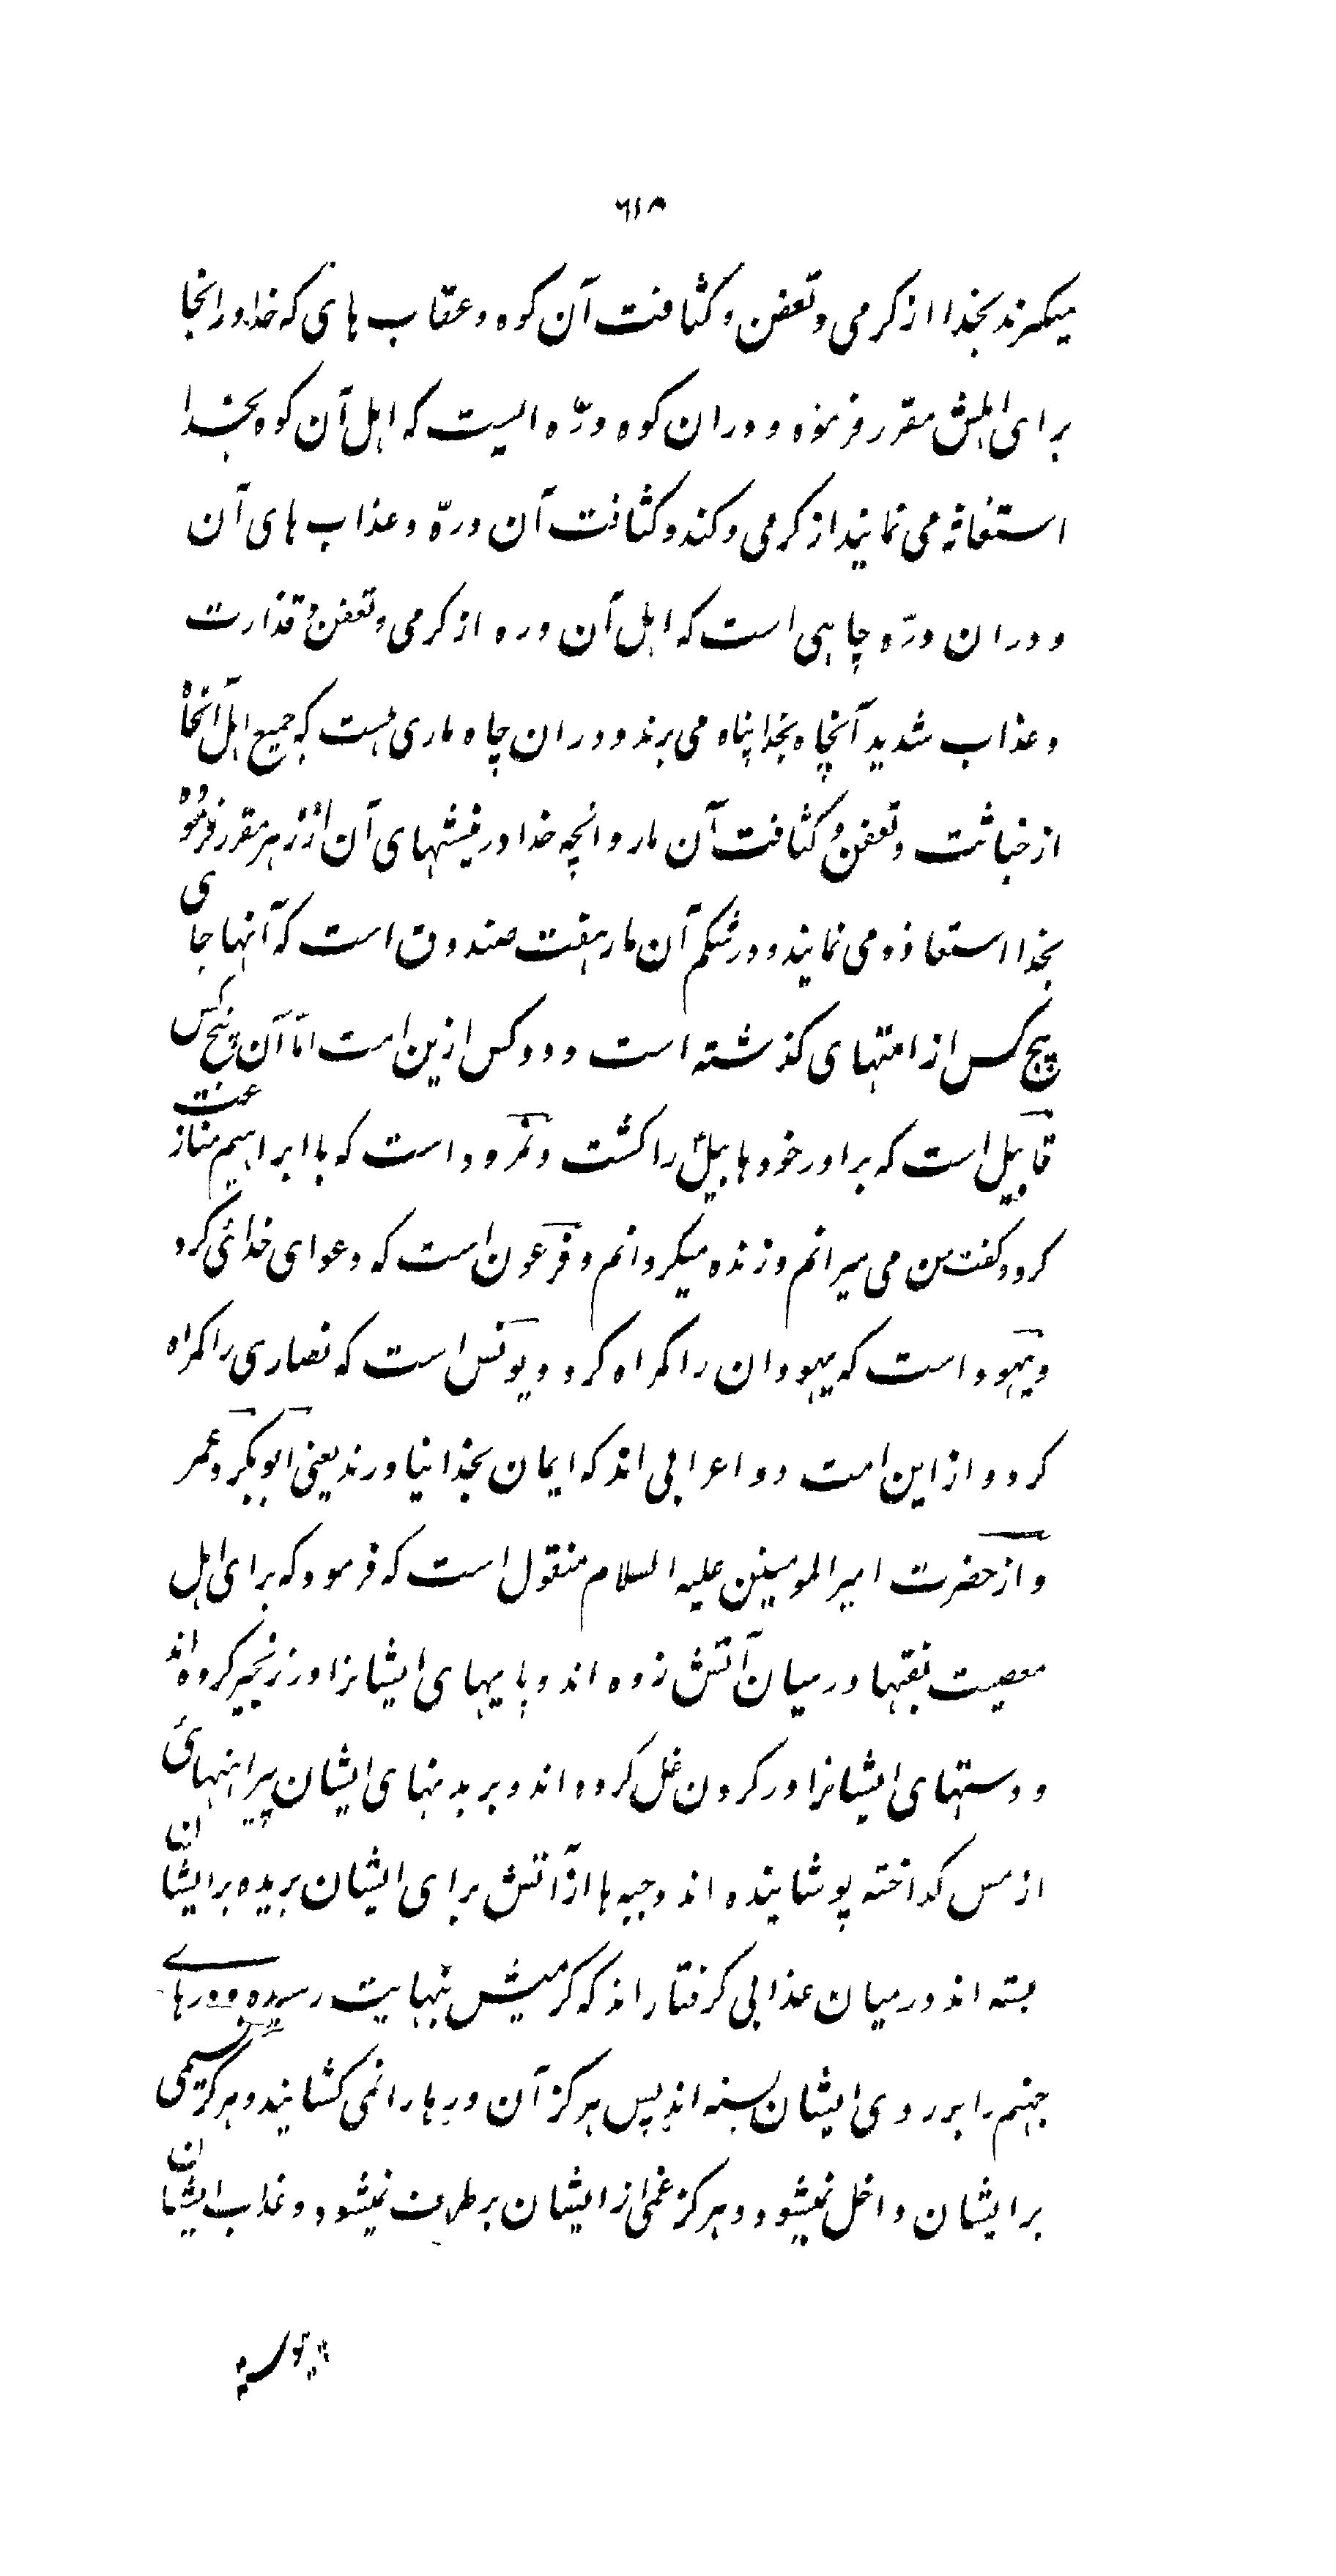 ٦١٨
میکیرند بخدا از کرمی و تعفن و کثافت آن کوه و عقاب های که خدا در انجا
برای اہلش مقرر فرموده و دران کوه درّه ایست که اہل آن کوه بخدا
استغاثه می نمایند از کرمی و کند و کثافت آن درّه و عذاب های آن
و دران درّه چاہی است که اہل آن دره از کرمی و تعفن و قذارت
و عذاب شدید آنچاه بخدا پناه می برند و دران چاه ماری ہست که جمیع اہل آنچاه
از خباثت و تعفن و کثافت آن مار و انچه خدا در نیشهای آن از زہر مقرر فرموده
بخدا استعاذه می نمایند و در شکم آن مار ہفت صندوق است که آنها جای
پنج کس از امتهای کذشته است و دو کس ازین امت امّا آن پنج کس
قابیل است که برادر خود هابیل را کشت و نمرود است که با ابراہیم منازعت
کرد و کفت من می میرانم و زنده میکردانم و فرعون است که دعوای خدائی کرد
و یہود است که یہودان را کمراه کرد و یونس است که نصاری را کمراه
کرد و از این امت دو اعرابی اند که ایمان بخدا نیاوردند یعنی ابوبکر و عمر
و از حضرت امیر المومنین علیه السلام منقول است که فرمود که برای اہل
معصیت نقبها در میان آتش زده اند و پایہای ایشانرا در زنجیر کرده اند
و دستهای ایشانرا در کردن غل کرده اند و بر بدنهای ایشان پیراہنهائی
از مس کداخته پوشانیده اند و جبه ها از آتش برای ایشان بریده بر ایشان
بسته اند در میان عذابی کرفتار اند که کرمیش بنہایت رسیده و در هاے
جہنم را بر روی ایشان بسته اند پس ہرکز آن درها را نمی کشایند و ہرکز نسیمی
بر ایشان داخل نمیشود و ہرکز غمی از ایشان برطرف نمیشود و عذاب ایشان